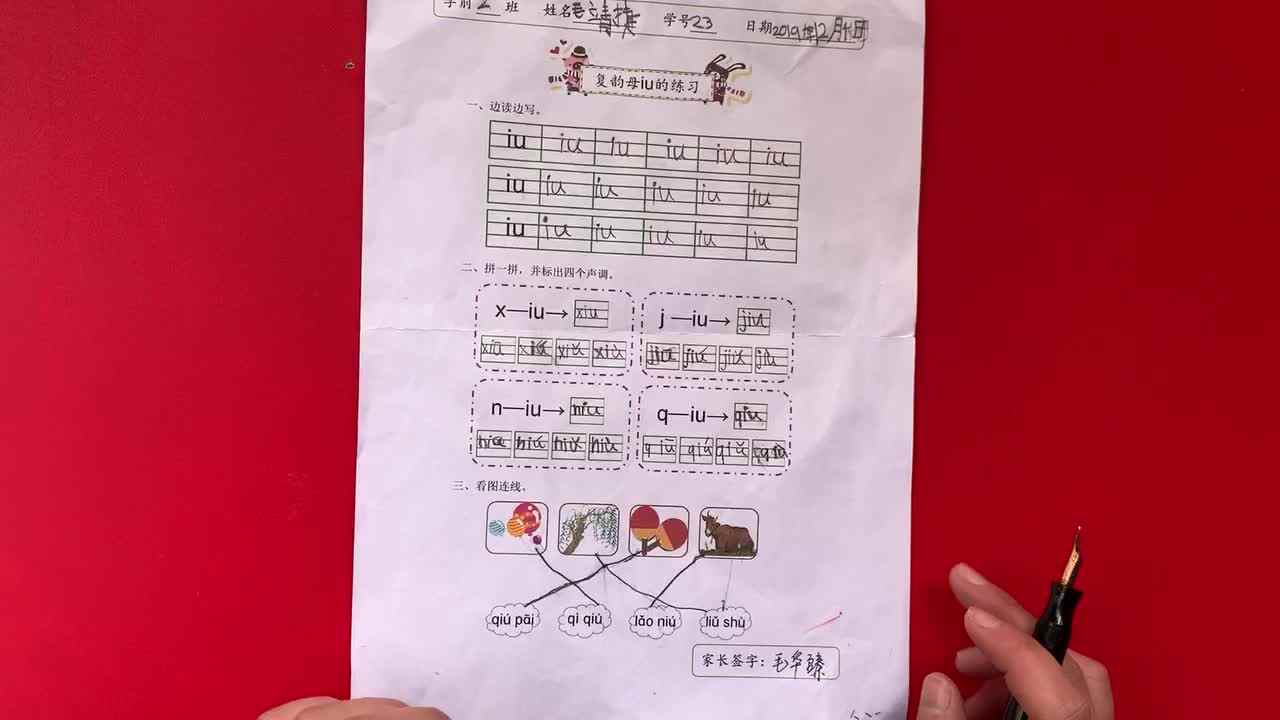 学前 2 班 姓名毛靖捷 学号23 日期2019年12月
复韵母iu的练习
一、边读边写。
iu iu iu iu iu iu
iu iu iu iu iu iu
iu iu iu iu iu iu
二、拼一拼，并标出四个声调。
x—iu→ xiu j—iu→ jiu
xiū xiú xiǔ xiù jiū jiú jiǔ jiù
n—iu→ niu q—iu→ qiu
niū niú niǔ niù qiū qiú qiǔ qiù
三、看图连线。
qiú pāi qì qiú lǎo niú liǔ shù
家长签字：毛华臻